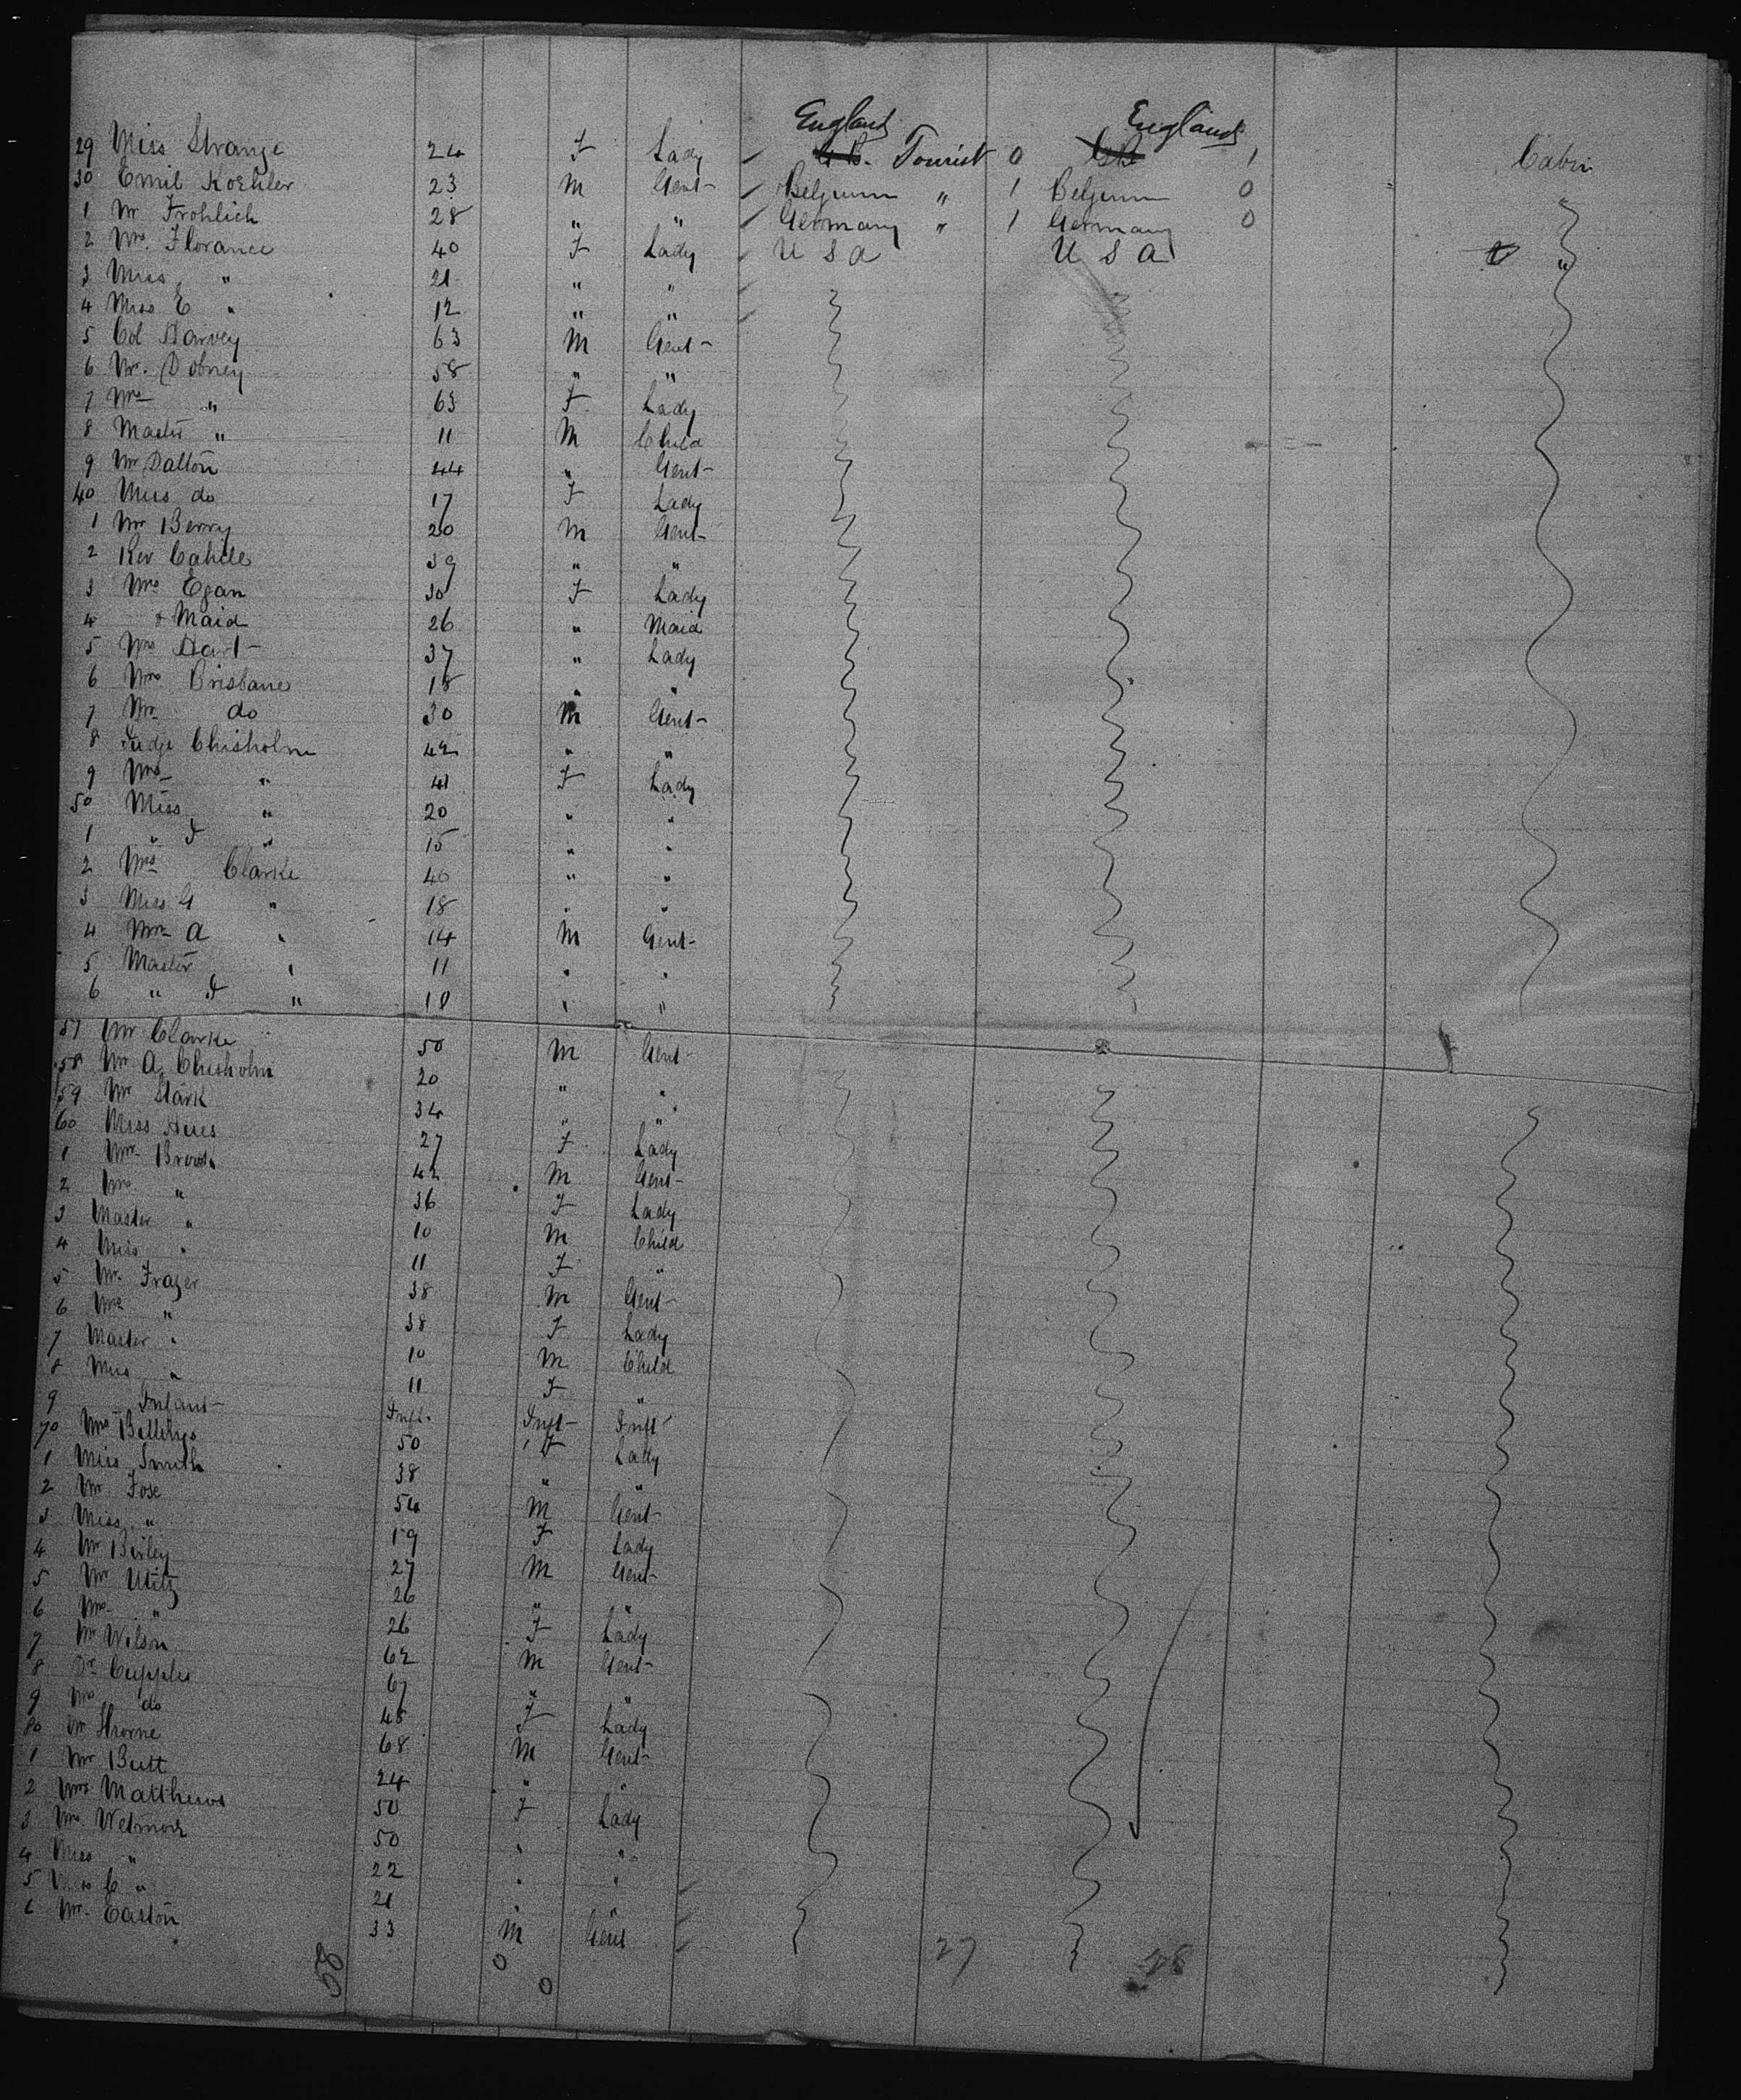 England England
29 Miss Strange 24 F Lady G B. Tourist 0 GB 1 Cabin
30 Emil Koehler 23 M Gent Belgium " 1 Belgium 0 "
1 Mr Frohlich 28 " " Germany " 1 Germany 0
2 Mrs Florance 40 F Lady U S A U S A "
3 Miss " 21 " "
4 Miss E " 12 " "
5 Col Harvey 63 M Gent
6 Mr. Dobney 58 " "
7 Mrs " 63 F Lady
8 Master " 11 M Child
9 Mr Dalton 44 " Gent
40 Miss do 17 F Lady
1 Mr Berry 20 M Gent
2 Rev Cahill 39 " "
3 Mrs Egan 30 F Lady
4 & Maid 26 " Maid
5 Mrs Hart 37 " Lady
6 Mrs Brisbane 18 " "
7 Mr do 30 M Gent
8 Judge Chisholm 42 " "
9 Mrs " 41 F Lady
50 Miss " 20 " "
1 " J " 15 " "
2 Mrs Clarke 40 " "
3 Miss G " 18 " "
4 Mr A " 14 M Gent
5 Master " 11 " "
6 " J " 10 " "
57 Mr Clarke 50 M Gent
58 Mr A. Chisholm 20 " "
59 Mr Stark 34 " "
60 Miss 27 F Lady
1 Mr Brown 42 M Gent
2 Mrs " 36 F Lady
3 Master " 10 M Child
4 Miss " 11 F "
5 Mr. Frazer 38 M Gent
6 Mrs " 38 F Lady
7 Master " 10 M Child
8 Miss " 11 F "
9 Infant Inft. Inft Inft
70 Mrs 50 F Lady
1 Miss Smith 38 " "
2 Mr Fose 54 M Gent
3 Miss " 19 F Lady
4 Mr Birley 27 M Gent
5 Mr Utitz 26 " "
6 Mrs " 26 F Lady
7 Mr Wilson 62 M Gent
8 Dr Cupples 67 " "
9 Mrs do 45 F Lady
80 Mr Thorne 68 M Gent
1 Mr Butt 24 " "
2 Mrs Matthews 50 F Lady
3 Mrs. Wetmore 50 " "
4 Miss " 22 " "
5 Miss C " 21 " "
6 Mr. Easton 33 M Gent
0 27 28
0